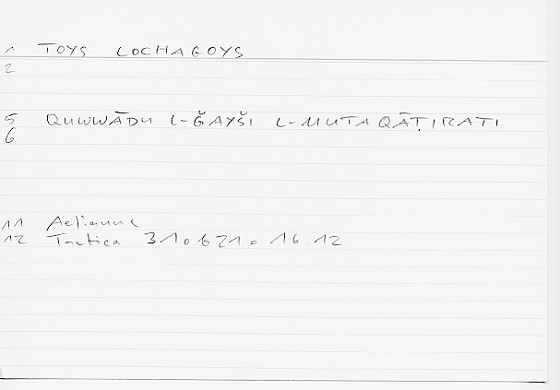 1 TOYS LOCHAGOYS
2
5 QUWWĀDU L-ǦAYŠI L-MUTAQĀṬIRATI
6
11 Aelianus
12 Tactica 310 621 16.12